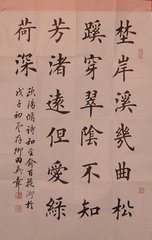 埜岸溪幾曲松
蹊穿翠陰不知
芳渚遠但愛綠
荷深
歐陽脩詩和圣俞百花洲於
戊子初田英章